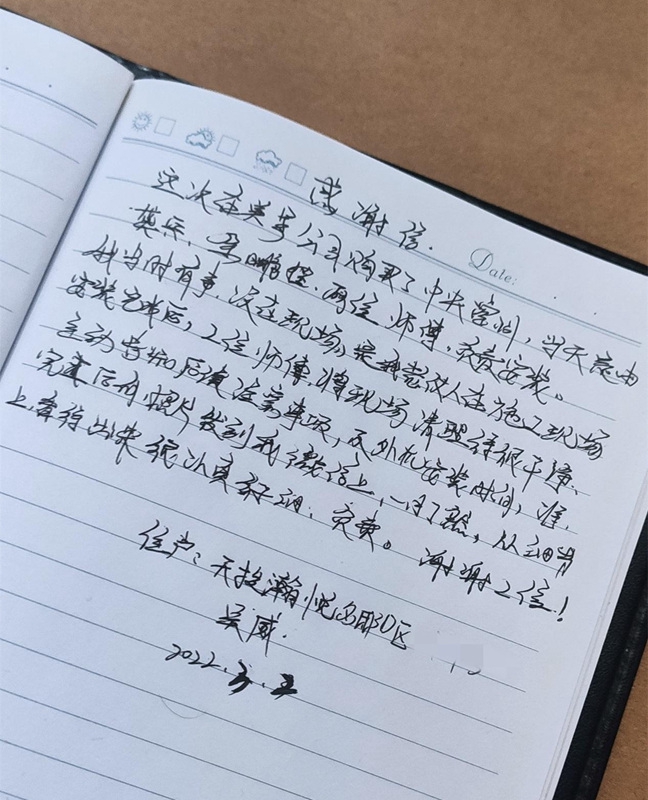 感谢信.
Date:
这次在美芽公司购买了中央空调,当天是由
英乐、鹏程.两位师傅,负责安装。
我当时有事,没在现场,是我家人在施工现场
安装完成后,2位师傅,将现场清理得很干净、
主动告知后续注意事项,及外机安装时间,
完善后的照片发到我微信上,一目了然,从细节
上.看得出来很认真仔细、负责。谢谢2位!
住户:天投瀚悦名邸D区
吴威.
2022.